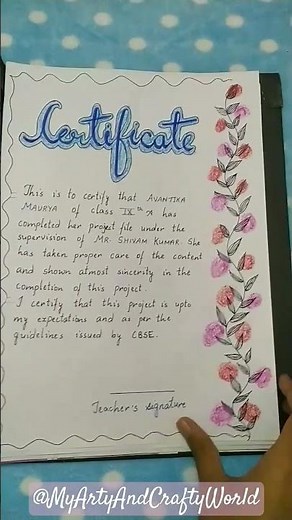 Certificate
This is to certify that AVANTIKA
MAURYA of class IXth A has
completed her project file under the
supervision of MR. SHIVAM KUMAR. She
has taken proper care of the content
and shown atmost sincerity in the
completion of this project.
I certify that this project is upto
my expectations and as per the
guidelines issued by CBSE.
Teacher's signature
@MyArtyAndCraftyWorld